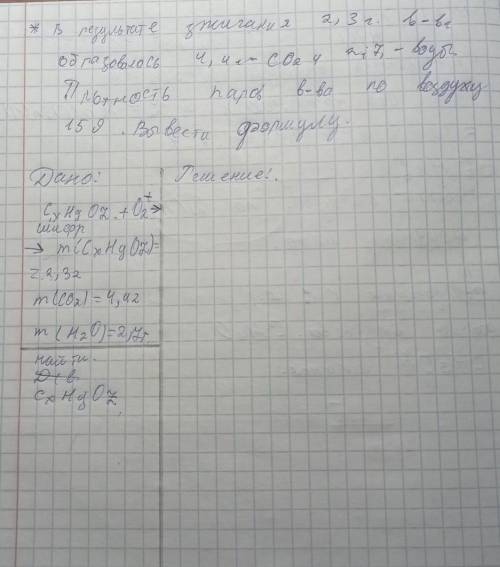 * В результате зжигания 2,3 г. в-ва
образовалось 4,4 г - CO2 и 2,7, - воды
Плотность паров в-ва по воздуху
159. Вывести формулу.
Дано: Решение:
CxHyOz + O2 →
шифр
→ m(CxHyOz)=
= 2,3г
m(CO2) = 4,4г
m(H2O)=2,7г
найти.
CxHyOz